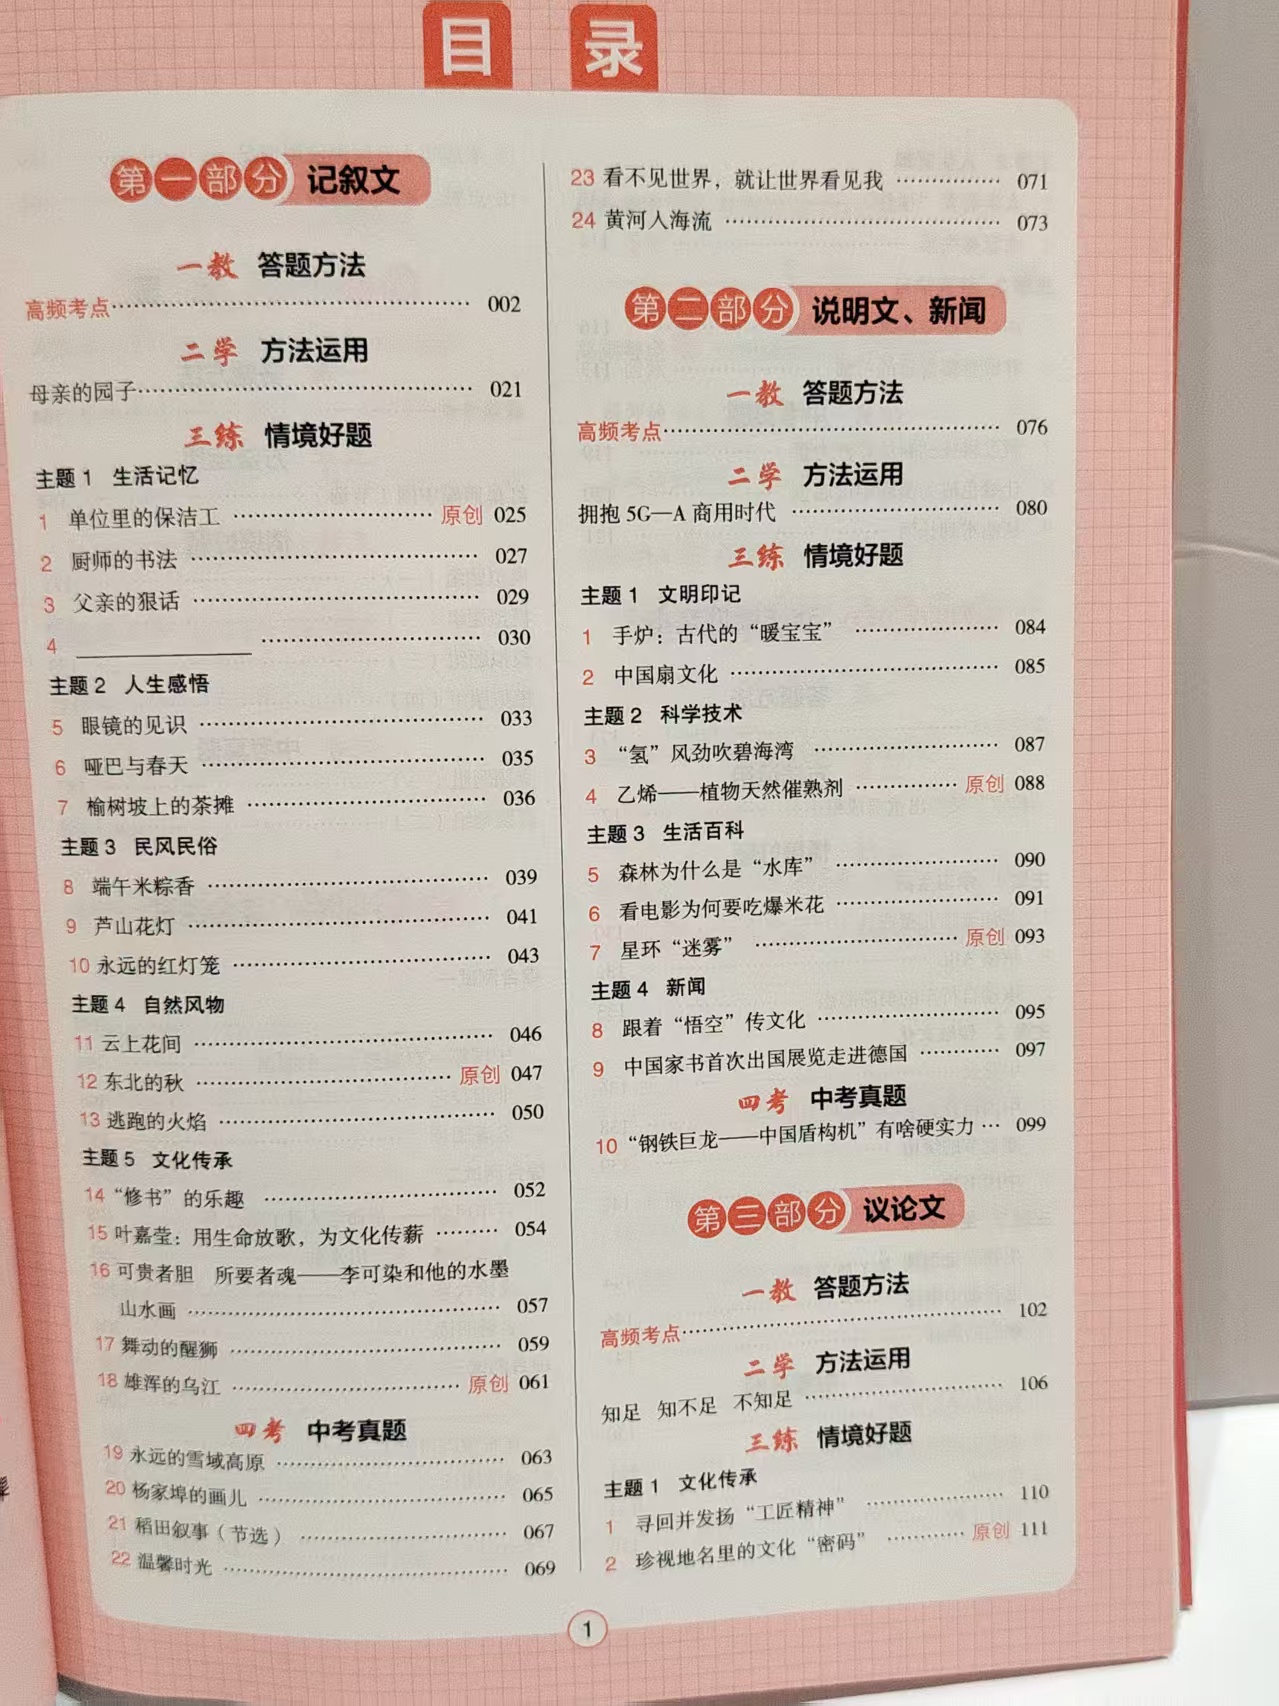 目录
第一部分 记叙文
一教 答题方法
高频考点 002
二学 方法运用
母亲的园子 021
三练 情境好题
主题1 生活记忆
1 单位里的保洁工 原创 025
2 厨师的书法 027
3 父亲的狠话 029
4 ____ 030
主题2 人生感悟
5 眼镜的见识 033
6 哑巴与春天 035
7 榆树坡上的茶摊 036
主题3 民风民俗
8 端午米粽香 039
9 芦山花灯 041
10 永远的红灯笼 043
主题4 自然风物
11 云上花间 046
12 东北的秋 原创 047
13 逃跑的火焰 050
主题5 文化传承
14 “修书”的乐趣 052
15 叶嘉莹：用生命放歌，为文化传薪 054
16 可贵者胆 所要者魂——李可染和他的水墨
山水画 057
17 舞动的醒狮 059
18 雄浑的乌江 原创 061
四考 中考真题
19 永远的雪域高原 063
20 杨家埠的画儿 065
21 稻田叙事（节选） 067
22 温馨时光 069
23 看不见世界，就让世界看见我 071
24 黄河入海流 073
第二部分 说明文、新闻
一教 答题方法
高频考点 076
二学 方法运用
拥抱5G—A商用时代 080
三练 情境好题
主题1 文明印记
1 手炉：古代的“暖宝宝” 084
2 中国扇文化 085
主题2 科学技术
3 “氢”风劲吹碧海湾 087
4 乙烯——植物天然催熟剂 原创 088
主题3 生活百科
5 森林为什么是“水库” 090
6 看电影为何要吃爆米花 091
7 星环“迷雾” 原创 093
主题4 新闻
8 跟着“悟空”传文化 095
9 中国家书首次出国展览走进德国 097
四考 中考真题
10 “钢铁巨龙——中国盾构机”有啥硬实力 099
第三部分 议论文
一教 答题方法
高频考点 102
二学 方法运用
知足 知不足 不知足 106
三练 情境好题
主题1 文化传承
1 寻回并发扬“工匠精神” 110
2 珍视地名里的文化“密码” 原创 111
1